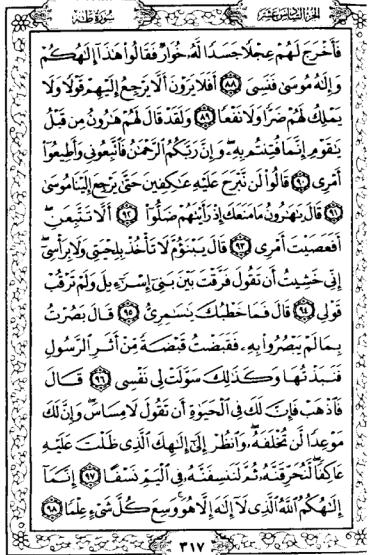 الجزء السادس عشر
سورة طه
فَأَخْرَجَ لَهُمْ عِجْلًا جَسَدًا لَّهُۥ خُوَارٌ فَقَالُوا۟ هَٰذَآ إِلَٰهُكُمْ
وَإِلَٰهُ مُوسَىٰ فَنَسِىَ ٨٨ أَفَلَا يَرَوْنَ أَلَّا يَرْجِعُ إِلَيْهِمْ قَوْلًا وَلَا
يَمْلِكُ لَهُمْ ضَرًّا وَلَا نَفْعًا ٨٩ وَلَقَدْ قَالَ لَهُمْ هَٰرُونُ مِن قَبْلُ
يَٰقَوْمِ إِنَّمَا فُتِنتُم بِهِۦ ۖ وَإِنَّ رَبَّكُمُ ٱلرَّحْمَٰنُ فَٱتَّبِعُونِى وَأَطِيعُوٓا۟
أَمْرِى ٩٠ قَالُوا۟ لَن نَّبْرَحَ عَلَيْهِ عَٰكِفِينَ حَتَّىٰ يَرْجِعَ إِلَيْنَا مُوسَىٰ
٩١ قَالَ يَٰهَٰرُونُ مَا مَنَعَكَ إِذْ رَأَيْتَهُمْ ضَلُّوٓا۟ ٩٢ أَلَّا تَتَّبِعَنِ ۖ
أَفَعَصَيْتَ أَمْرِى ٩٣ قَالَ يَبْنَؤُمَّ لَا تَأْخُذْ بِلِحْيَتِى وَلَا بِرَأْسِىٓ ۖ
إِنِّى خَشِيتُ أَن تَقُولَ فَرَّقْتَ بَيْنَ بَنِىٓ إِسْرَٰٓءِيلَ وَلَمْ تَرْقُبْ
قَوْلِى ٩٤ قَالَ فَمَا خَطْبُكَ يَٰسَٰمِرِىُّ ٩٥ قَالَ بَصُرْتُ
بِمَا لَمْ يَبْصُرُوا۟ بِهِۦ فَقَبَضْتُ قَبْضَةً مِّنْ أَثَرِ ٱلرَّسُولِ
فَنَبَذْتُهَا وَكَذَٰلِكَ سَوَّلَتْ لِى نَفْسِى ٩٦ قَالَ
فَٱذْهَبْ فَإِنَّ لَكَ فِى ٱلْحَيَوٰةِ أَن تَقُولَ لَا مِسَاسَ ۖ وَإِنَّ لَكَ
مَوْعِدًا لَّن تُخْلَفَهُۥ ۖ وَٱنظُرْ إِلَىٰٓ إِلَٰهِكَ ٱلَّذِى ظَلْتَ عَلَيْهِ
عَاكِفًا ۖ لَّنُحَرِّقَنَّهُۥ ثُمَّ لَنَنسِفَنَّهُۥ فِى ٱلْيَمِّ نَسْفًا ٩٧ إِنَّمَآ
إِلَٰهُكُمُ ٱللَّهُ ٱلَّذِى لَآ إِلَٰهَ إِلَّا هُوَ ۚ وَسِعَ كُلَّ شَىْءٍ عِلْمًا ٩٨
٣١٧